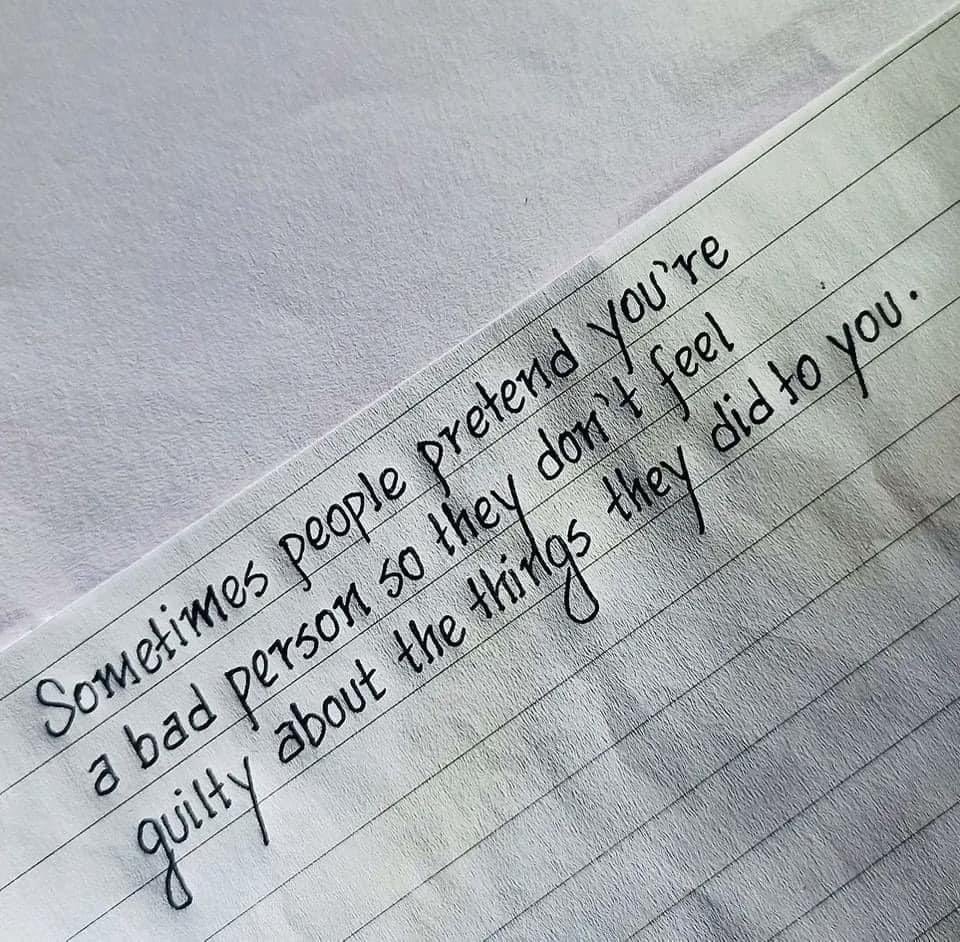 Sometimes people pretend you're
a bad person so they don't feel
guilty about the things they did to you.